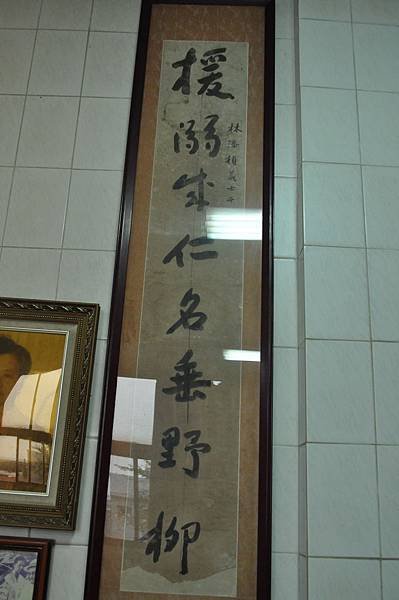 援溺成仁名垂野柳
林添楨義士千